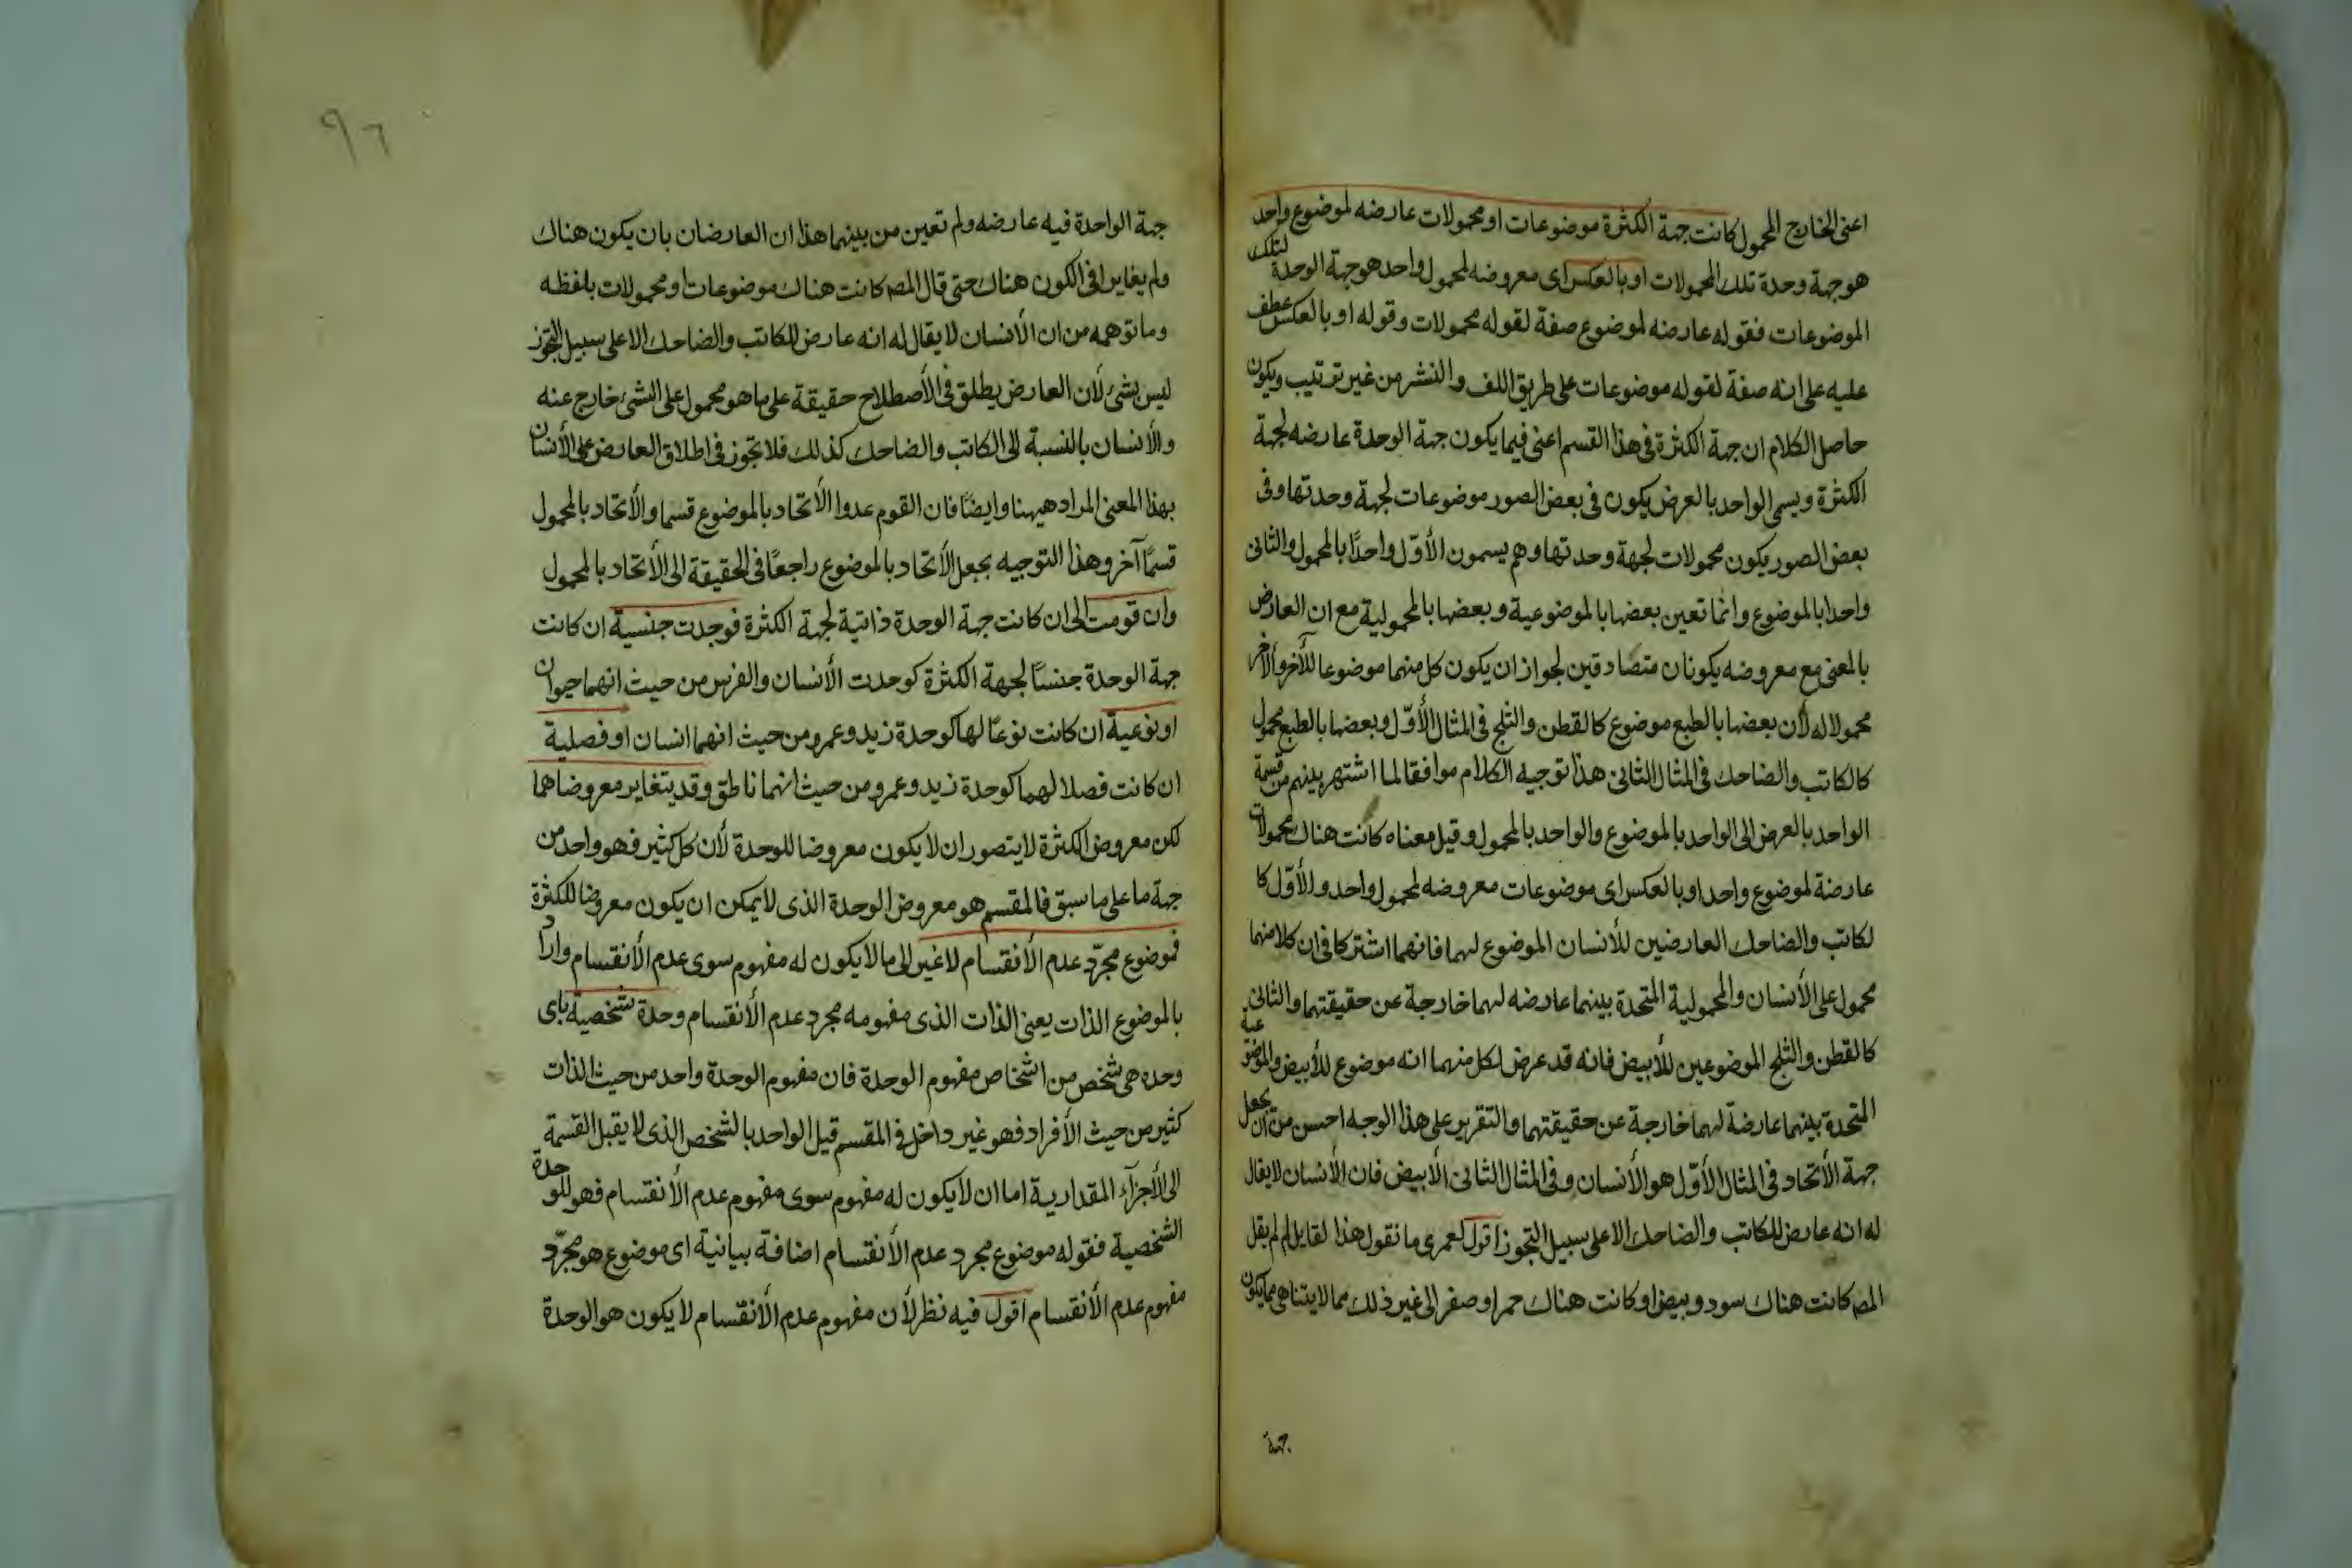 اعنى الخارج المحمول كانت جهة الكثرة موضوعات او محمولات عارضه لموضوع واحد
هو جهة وحدة تلك المحمولات او بالعكس اى معروضه لمحمول واحد هو جهة الوحدة لتلك
الموضوعات فقوله عارضه لموضوع صفة لقوله محمولات وقوله او بالعكس عطف
عليه على انه صفة لقوله موضوعات على طريق اللف والنشر من غير ترتيب ويكون
حاصل الكلام ان جهة الكثرة فى هذا القسم اعنى فيما يكون جهة الوحدة عارضه لجهة
الكثرة ويسمى الواحد بالعرض يكون فى بعض الصور موضوعات لجهة وحدتها وفى
بعض الصور يكون محمولات لجهة وحدتها وهم يسمون الأوّل واحدًا بالمحمول والثانى
واحدا بالموضوع وانما تعين بعضها بالموضوعية وبعضها بالمحمولية مع ان العارض
بالمعنى مع معروضه يكونان متصادقين لجواز ان يكون كل منهما موضوعا للأخر والأخر
محمولا له لأن بعضها بالطبع موضوع كالقطن والثلج فى المثال الأوّل وبعضها بالطبع محمول
كالكاتب والضاحك فى المثال الثانى هذا توجيه الكلام موافقا لما اشتهر بينهم من قسمة
الواحد بالعرض الى الواحد بالموضوع والواحد بالمحمول وقيل معناه كانت هناك محمولات
عارضة لموضوع واحد او بالعكس اى موضوعات معروضه لمحمول واحد والأوّل كا
لكاتب والضاحك العارضين للأنسان الموضوع لهما فانهما اشتركا فى ان كلا منهما
محمول على الأنسان والمحمولية المتحدة بينهما عارضه لهما خارجة عن حقيقتهما والثانى
كالقطن والثلج الموضوعين للأبيض فانه قد عرض لكل منهما انه موضوع للأبيض والموضوعية
المتحدة بينهما عارضة لهما خارجة عن حقيقتهما والتقرير على هذا الوجه احسن من ان يجعل
جهة الأتحاد فى المثال الأوّل هو الأنسان وفى المثال الثانى الأبيض فان الأنسان لا يقال
له انه عارض للكاتب والضاحك الا على سبيل التجوز اقول لعمرى ما نقول هذا لقايل لم لم يقل
المصـ كانت هناك سود وبيض او كانت هناك حمر او صفر الى غير ذلك مما لا يتناهى مما يكون
جهة
٩٦
جهة الواحدة فيه عارضه ولم تعين من بينهما هذا ان العارضان بان يكون هناك
ولم يغايرا فى الكون هناك حتى قال المصـ كانت هناك موضوعات او محمولات بلفظه
وما توهمه من ان الأنسان لا يقال له انه عارض للكاتب والضاحك الا على سبيل التجوز
ليس بشئ لأن العارض يطلق فى الأصطلاح حقيقة على ما هو محمول على الشئ خارج عنه
والأنسان بالنسبة الى الكاتب والضاحك كذلك فلا تجوز فى اطلاق العارض على الأنسان
بهذا المعنى المراد هيهنا وايضًا فان القوم عدوا الأتحاد بالموضوع قسما والأتحاد بالمحمول
قسمًا آخر وهذا التوجيه يجعل الأتحاد بالموضوع راجعًا فى الحقيقة الى الأتحاد بالمحمول
وان قومت الى ان كانت جهة الوحدة ذاتية لجهة الكثرة فوجدت جنسية ان كانت
جهة الوحدة جنسًا لجهة الكثرة كوحدت الأنسان والفرس من حيث انهما حيوان
او نوعية ان كانت نوعًا لها كوحدة زيد وعمرو من حيث انهما انسان او فصلية
ان كانت فصلا لهما كوحدة زيد وعمرو من حيث انهما ناطق وقد يتغاير معروضاهما
لكن معروض الكثرة لا يتصور ان لا يكون معروضا للوحدة لأن كل كثير فهو واحد من
جهة ما على ما سبق فالمقسم هو معروض الوحدة الذى لا يمكن ان يكون معروضا للكثرة
فموضوع مجرّد عدم الأنقسام لا غير الى ما لا يكون له مفهوم سوى عدم الأنقسام واراد
بالموضوع الذات يعنى الذات الذى مفهومه مجرد عدم الأنقسام وحدة شخصية باى
وحده هى شخص من اشخاص مفهوم الوحدة فان مفهوم الوحدة واحد من حيث الذات
كثير من حيث الأفراد فهو غير داخل فى المقسم قيل الواحد بالشخص الذى لا يقبل القسمة
الى الأجزآء المقدارية اما ان لا يكون له مفهوم سوى مفهوم عدم الأنقسام فهو للوحدة
الشخصية فقوله موضوع مجرد عدم الأنقسام اضافة بيانية اى موضوع هو مجرّد
مفهوم عدم الأنقسام اقول فيه نظر لأن مفهوم عدم الأنقسام لا يكون هو الوحدة